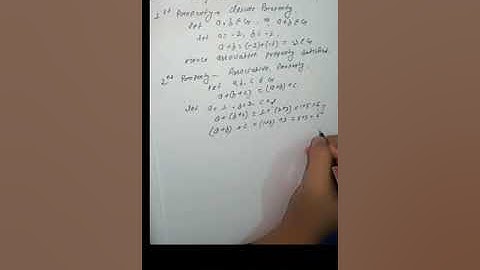 1st Property - Closure Property
let a, b ∈ G ⇒ a+b ∈ G
let a = -2, b = -1
a+b = (-2)+(-1) = -3 ∈ G
Hence associative property satisfied.
2nd Property - Associative Property
let a, b, c ∈ G
a+(b+c) = (a+b)+c
let a=1, b=2, c=3
a+(b+c) = 1+(2+3) = 1+5=6
(a+b)+c = (1+2)+3 = 3+3=6